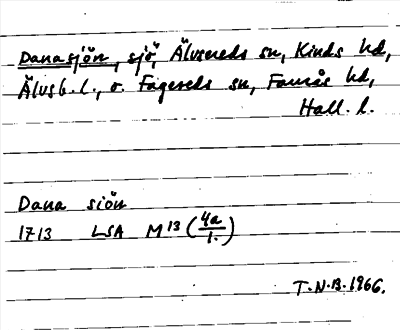 Danasjön, sjö, Älvsereds sn, Kinds hd,
Älvsb. l., o. Fagereds sn, Faurås hd,
Hall. l.
Dana siön
1713 LSA M 13 (4a/1.)
T.N.B. 1966.